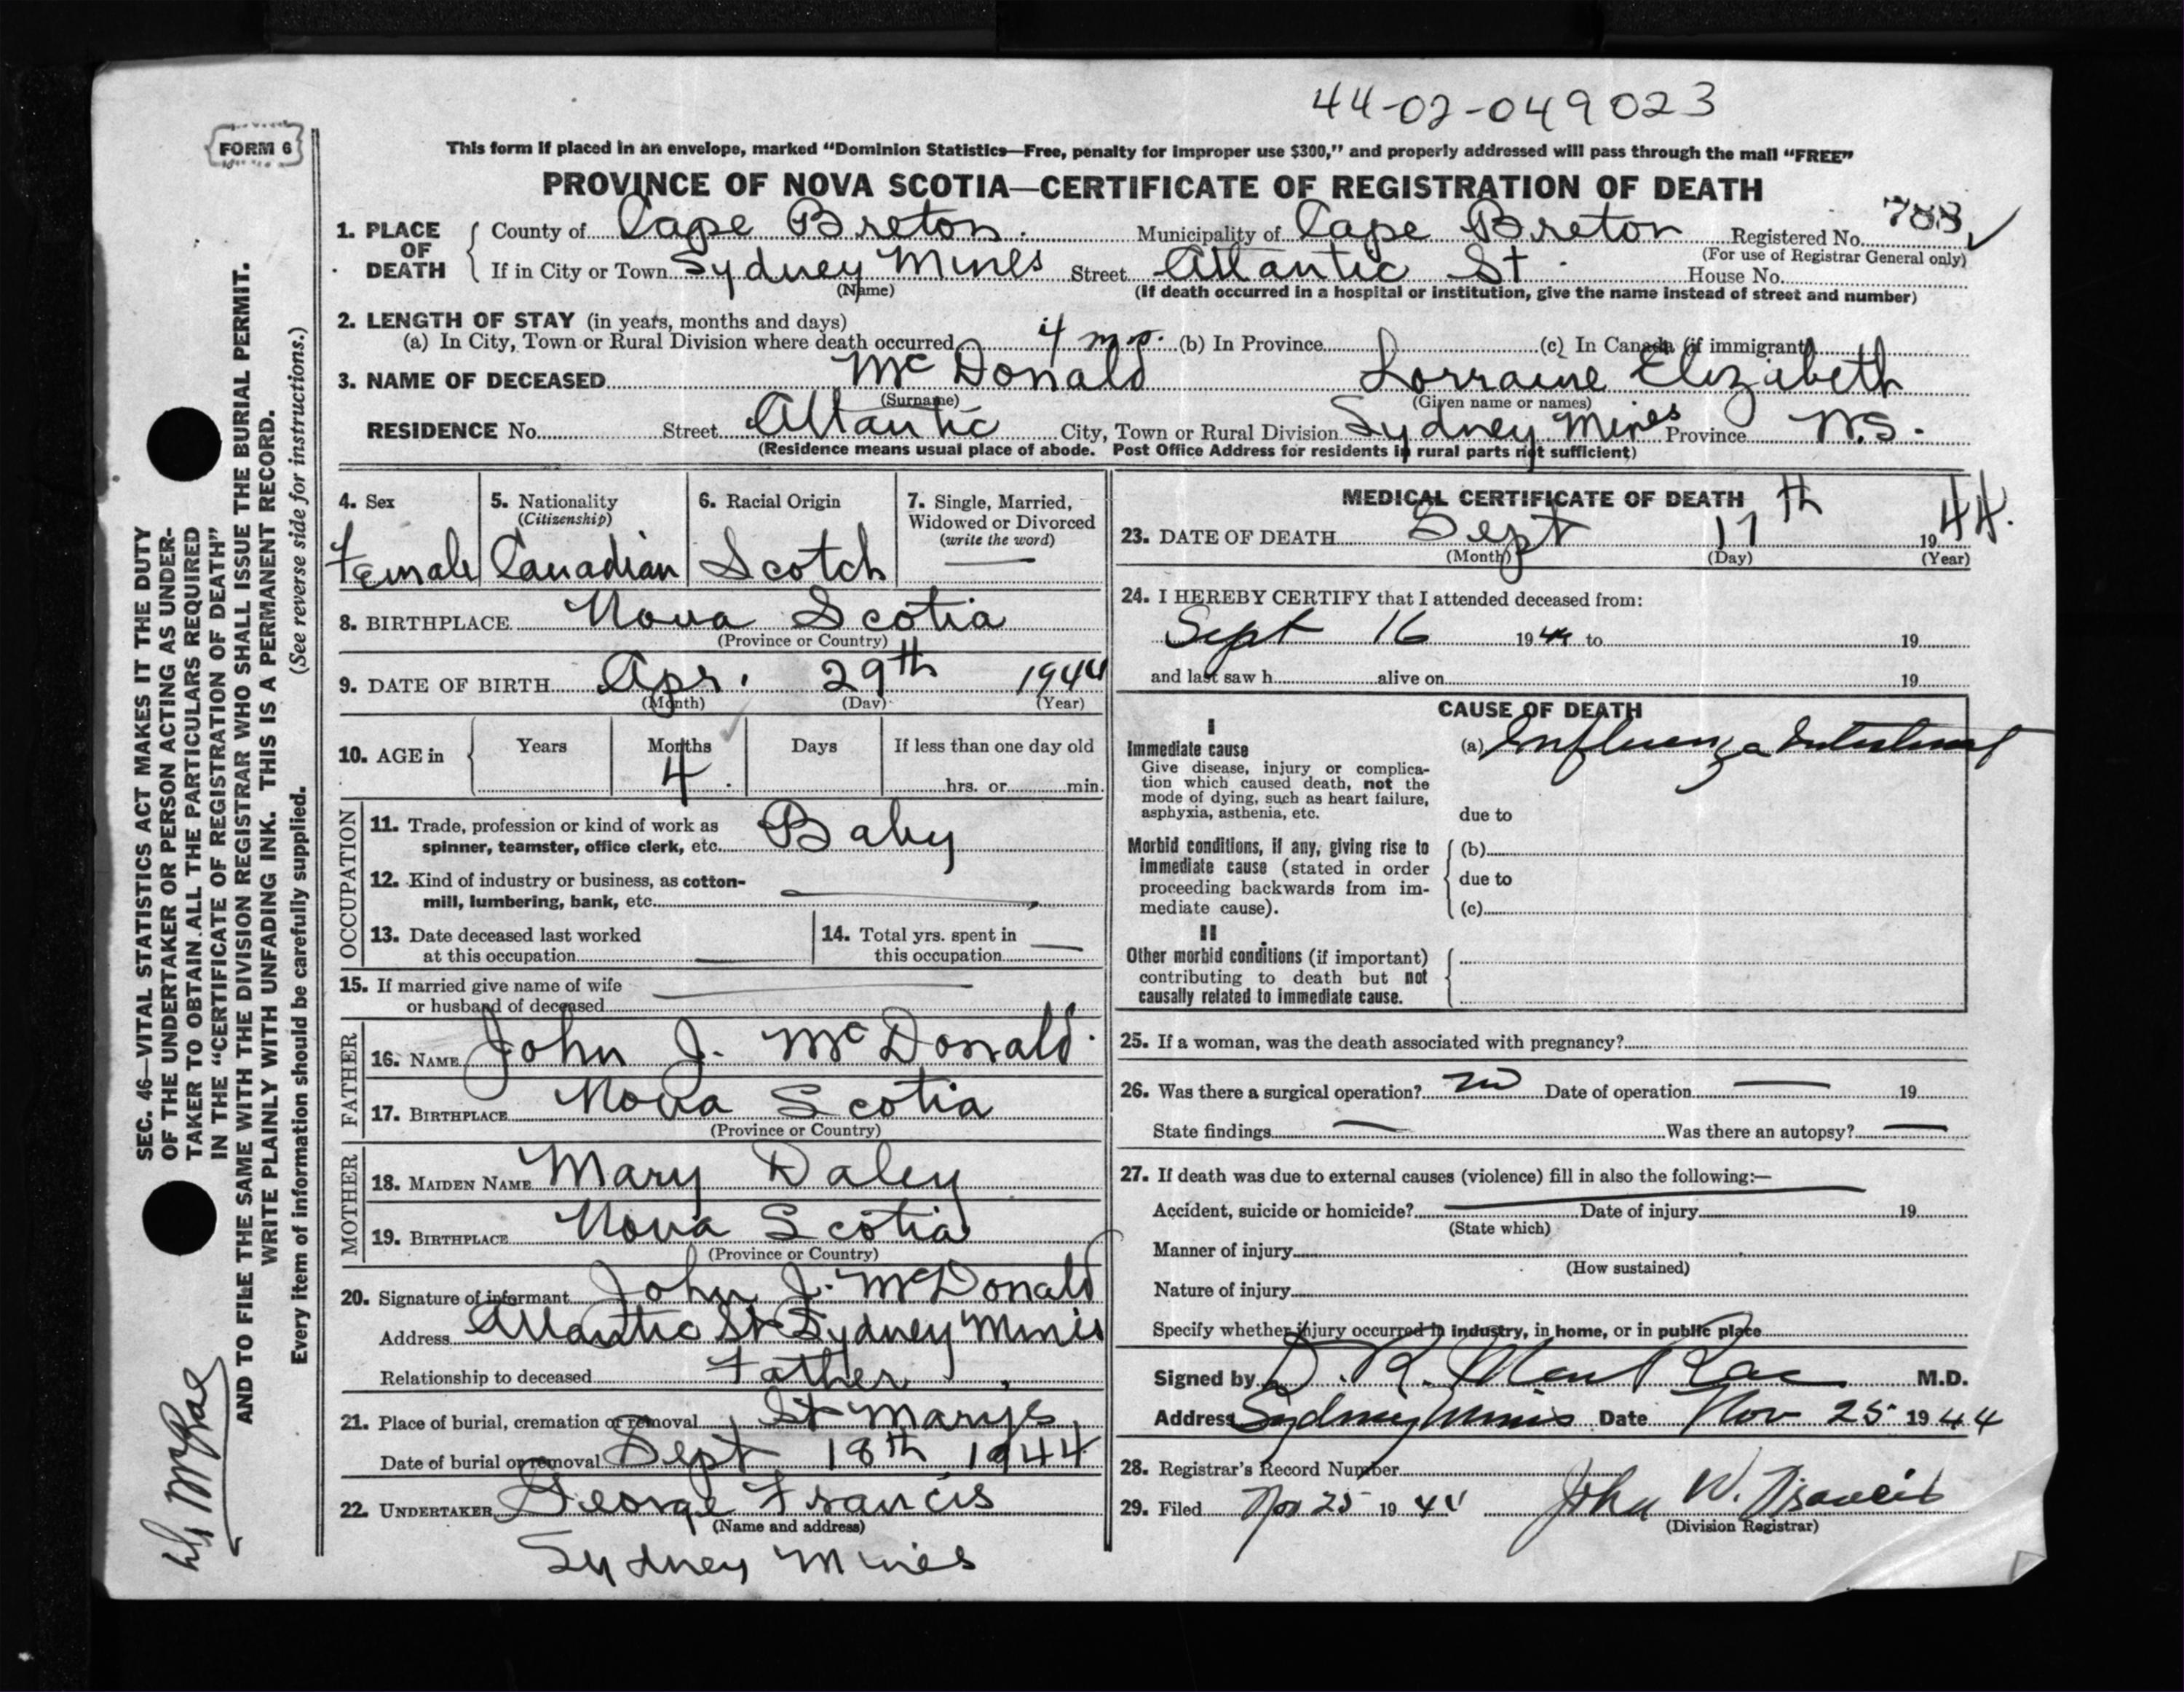 44-02-049023
FORM 6
This form if placed in an envelope, marked “Dominion Statistics—Free, penalty for improper use $300,” and properly addressed will pass through the mail “FREE”
PROVINCE OF NOVA SCOTIA—CERTIFICATE OF REGISTRATION OF DEATH
1. PLACE OF DEATH County of Cape Breton. Municipality of Cape Breton Registered No. 788 ✓
(For use of Registrar General only)
If in City or Town Sydney Mines Street Atlantic St. House No.
(Name) (If death occurred in a hospital or institution, give the name instead of street and number)
2. LENGTH OF STAY (in years, months and days)
(a) In City, Town or Rural Division where death occurred 4 mo. (b) In Province (c) In Canada (if immigrant)
3. NAME OF DECEASED McDonald Lorraine Elizabeth
(Surname) (Given name or names)
RESIDENCE No. Street Atlantic City, Town or Rural Division Sydney Mines Province N.S.
(Residence means usual place of abode. Post Office Address for residents in rural parts not sufficient)
4. Sex
Female
5. Nationality
(Citizenship)
Canadian
6. Racial Origin
Scotch
7. Single, Married,
Widowed or Divorced
(write the word)
—
8. BIRTHPLACE Nova Scotia
(Province or Country)
9. DATE OF BIRTH Apr. 29th 1944
(Month) (Day) (Year)
10. AGE in Years Months Days If less than one day old
4 hrs. or min.
OCCUPATION
11. Trade, profession or kind of work as
spinner, teamster, office clerk, etc. Baby
12. Kind of industry or business, as cotton-
mill, lumbering, bank, etc. —
13. Date deceased last worked
at this occupation —
14. Total yrs. spent in
this occupation —
15. If married give name of wife
or husband of deceased —
FATHER
16. NAME John J. McDonald
17. BIRTHPLACE Nova Scotia
(Province or Country)
MOTHER
18. MAIDEN NAME Mary Daley
19. BIRTHPLACE Nova Scotia
(Province or Country)
20. Signature of informant John J. McDonald
Address Atlantic St Sydney Mines
Relationship to deceased Father
21. Place of burial, cremation or removal St Marys
Date of burial or removal Sept 18th 1944
22. UNDERTAKER George Francis
(Name and address)
Sydney Mines
MEDICAL CERTIFICATE OF DEATH
23. DATE OF DEATH Sept 17th 1944.
(Month) (Day) (Year)
24. I HEREBY CERTIFY that I attended deceased from:
Sept 16 1944 to 19
and last saw h alive on 19
CAUSE OF DEATH
I
Immediate cause
Give disease, injury or complica-
tion which caused death, not the
mode of dying, such as heart failure,
asphyxia, asthenia, etc.
(a) Influenza Intestinal
due to
Morbid conditions, if any, giving rise to
immediate cause (stated in order
proceeding backwards from im-
mediate cause).
(b)
due to
(c)
II
Other morbid conditions (if important)
contributing to death but not
causally related to immediate cause.
25. If a woman, was the death associated with pregnancy?
26. Was there a surgical operation? no Date of operation — 19
State findings — Was there an autopsy? —
27. If death was due to external causes (violence) fill in also the following:—
Accident, suicide or homicide? Date of injury 19
(State which)
Manner of injury
(How sustained)
Nature of injury
Specify whether injury occurred in industry, in home, or in public place
Signed by D. R. MacRae M.D.
Address Sydney Mines Date Nov 25 1944
28. Registrar's Record Number
29. Filed Nov 25 1944 John W. Francis
(Division Registrar)
SEC. 46—VITAL STATISTICS ACT MAKES IT THE DUTY
OF THE UNDERTAKER OR PERSON ACTING AS UNDER-
TAKER TO OBTAIN ALL THE PARTICULARS REQUIRED
IN THE “CERTIFICATE OF REGISTRATION OF DEATH”
AND TO FILE THE SAME WITH THE DIVISION REGISTRAR WHO SHALL ISSUE THE BURIAL PERMIT.
WRITE PLAINLY WITH UNFADING INK. THIS IS A PERMANENT RECORD.
Every item of information should be carefully supplied. (See reverse side for instructions.)
Dr McRae